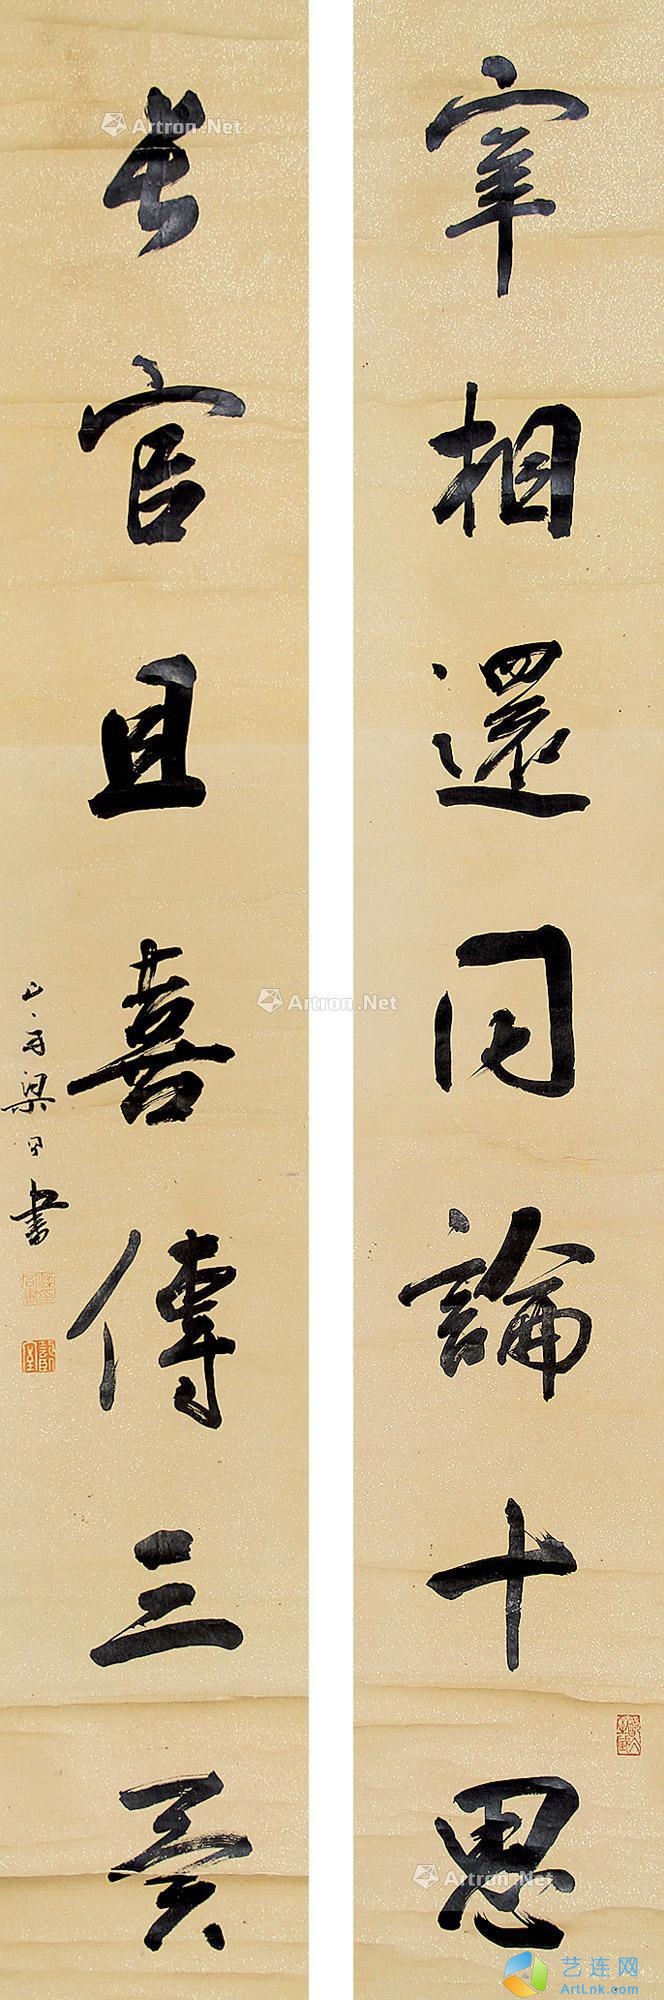 宰相還同論十思
長官且喜傳三異
山舟梁同書
Artron.Net
Artron.Net
Artron.Net
Artron.Net
艺连网
ArtLnk.com